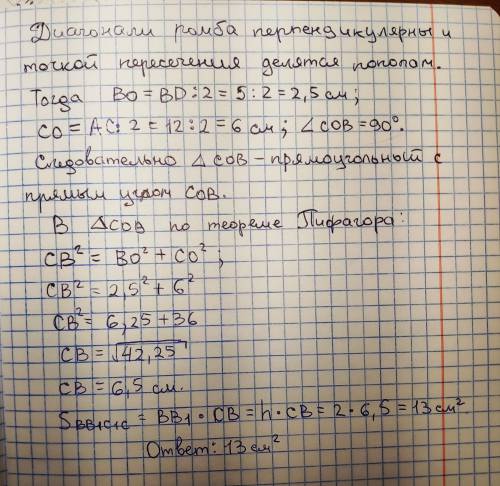 Диагонали ромба перпендикулярны и
точкой пересечения делятся пополам.
Тогда BO = BD : 2 = 5 : 2 = 2,5 см;
CO = AC : 2 = 12 : 2 = 6 см; ∠COB = 90°.
Следовательно △COB – прямоугольный с
прямым углом COB.
В △COB по теореме Пифагора:
CB² = BO² + CO²;
CB² = 2,5² + 6²
CB² = 6,25 + 36
CB = √42,25
CB = 6,5 см.
S_BB1C1C = BB1 · CB = h · CB = 2 · 6,5 = 13 см²
Ответ: 13 см²